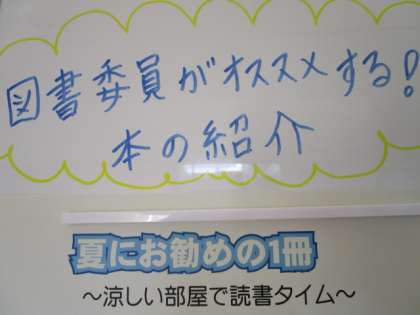 図書委員がオススメする!
本の紹介
夏にお勧めの1冊
～涼しい部屋で読書タイム～